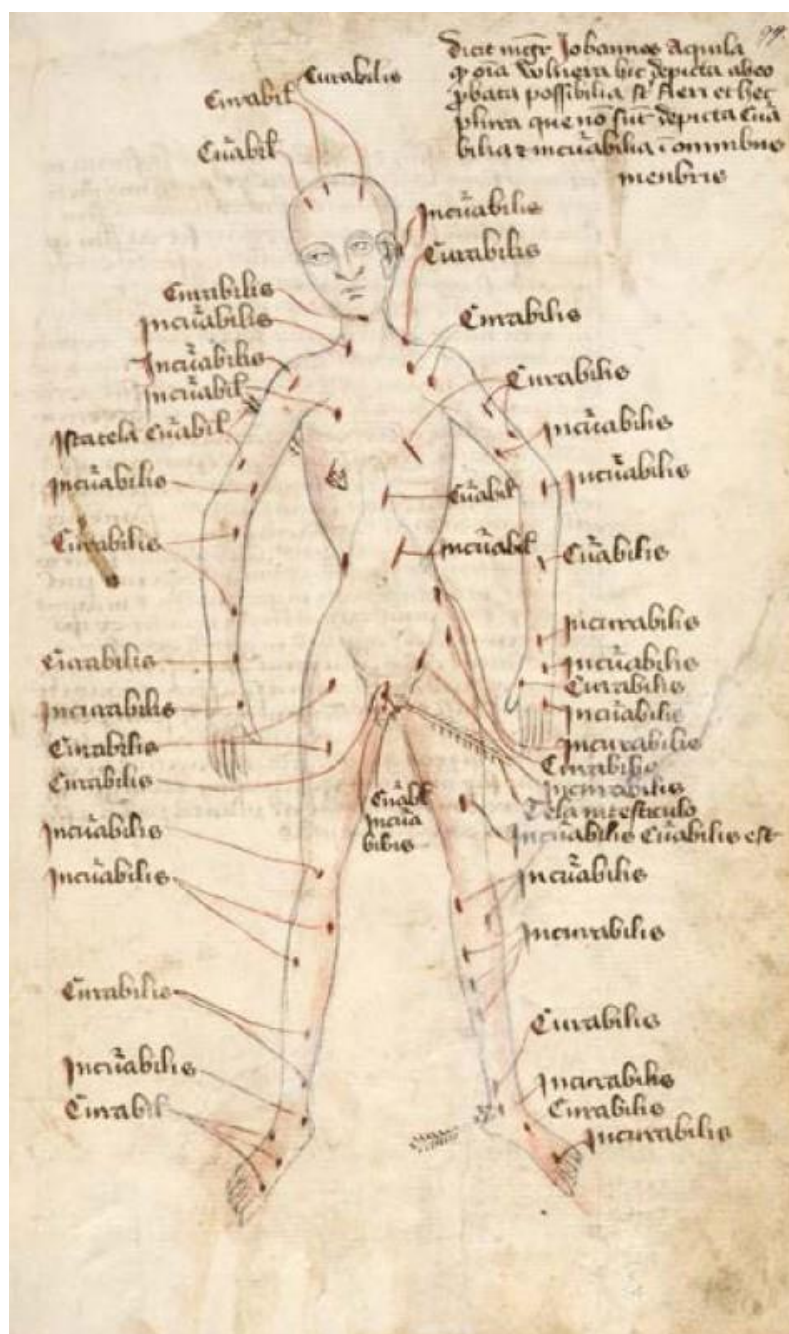 99.
dicit mgr Johannes Aquila
q oia vulnera hic depicta ab eo
pbata possibilia st fieri et hec
plura que nō sūt depicta Cūa
bilia ⁊ incūabilia ī omnibus
menbris
Curabilis
Curabil
Cūabil
Incūabilis
Curabilis
Curabilis
Incūabilis
Curabilis
Incūabilis
Incūabil
Curabilis
Ista tela Cūabil
Incūabilis
Incūabilis
Incūabilis
Cūabil
Curabilis
Incūabil
Cūabilis
Incurabilis
Cūrabilis
Incūabilis
Curabilis
Incurabilis
Incūabilis
Curabilis
Incurabilis
Curabilis
Curabilis
Incurabilis
Cūabil
Incūa
bilis
Tela in testiculo
Incūabilis
Incūabilis Cūabilis est
Incūabilis
Incūabilis
Incurabilis
Curabilis
Curabilis
Incūabilis
Incurabilis
Curabil
Curabilis
Incurabilis